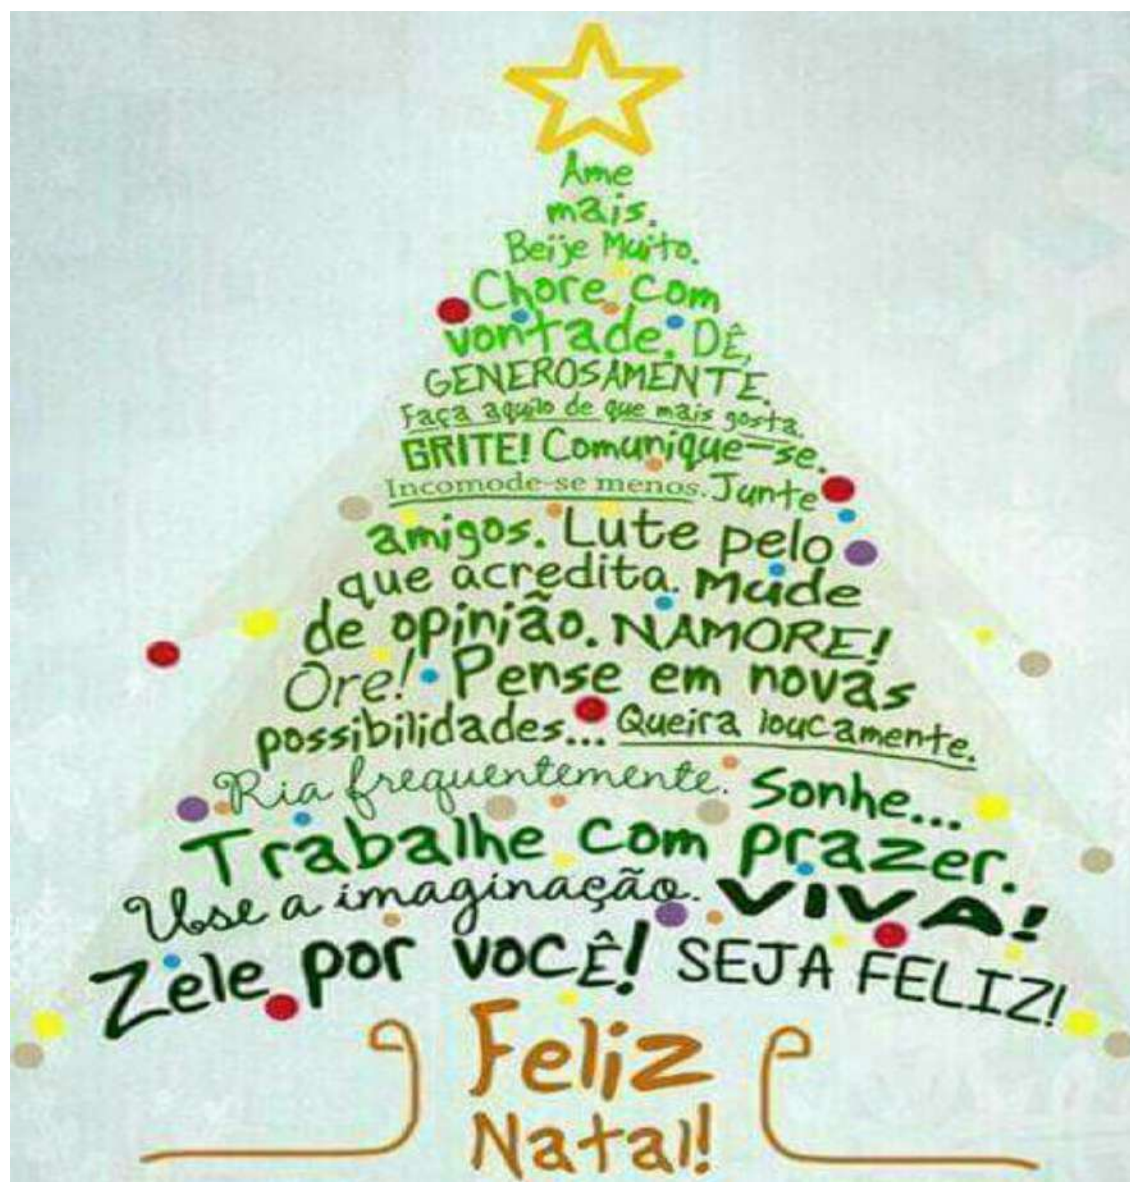 Ame
mais.
Beije Muito.
Chore com
vontade. DÊ,
GENEROSAMENTE.
Faça aquilo de que mais gosta.
GRITE! Comunique-se.
Incomode-se menos. Junte
amigos. Lute pelo
que acredita. Mude
de opinião. NAMORE!
Ore! Pense em novas
possibilidades... Queira loucamente.
Ria frequentemente. Sonhe...
Trabalhe com prazer.
Use a imaginação. VIVA!
Zele por você! SEJA FELIZ!
Feliz
Natal!